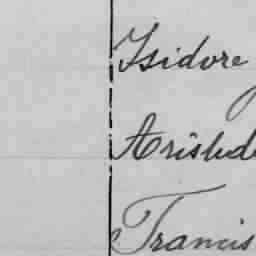 Isidore
Aristide
Francis